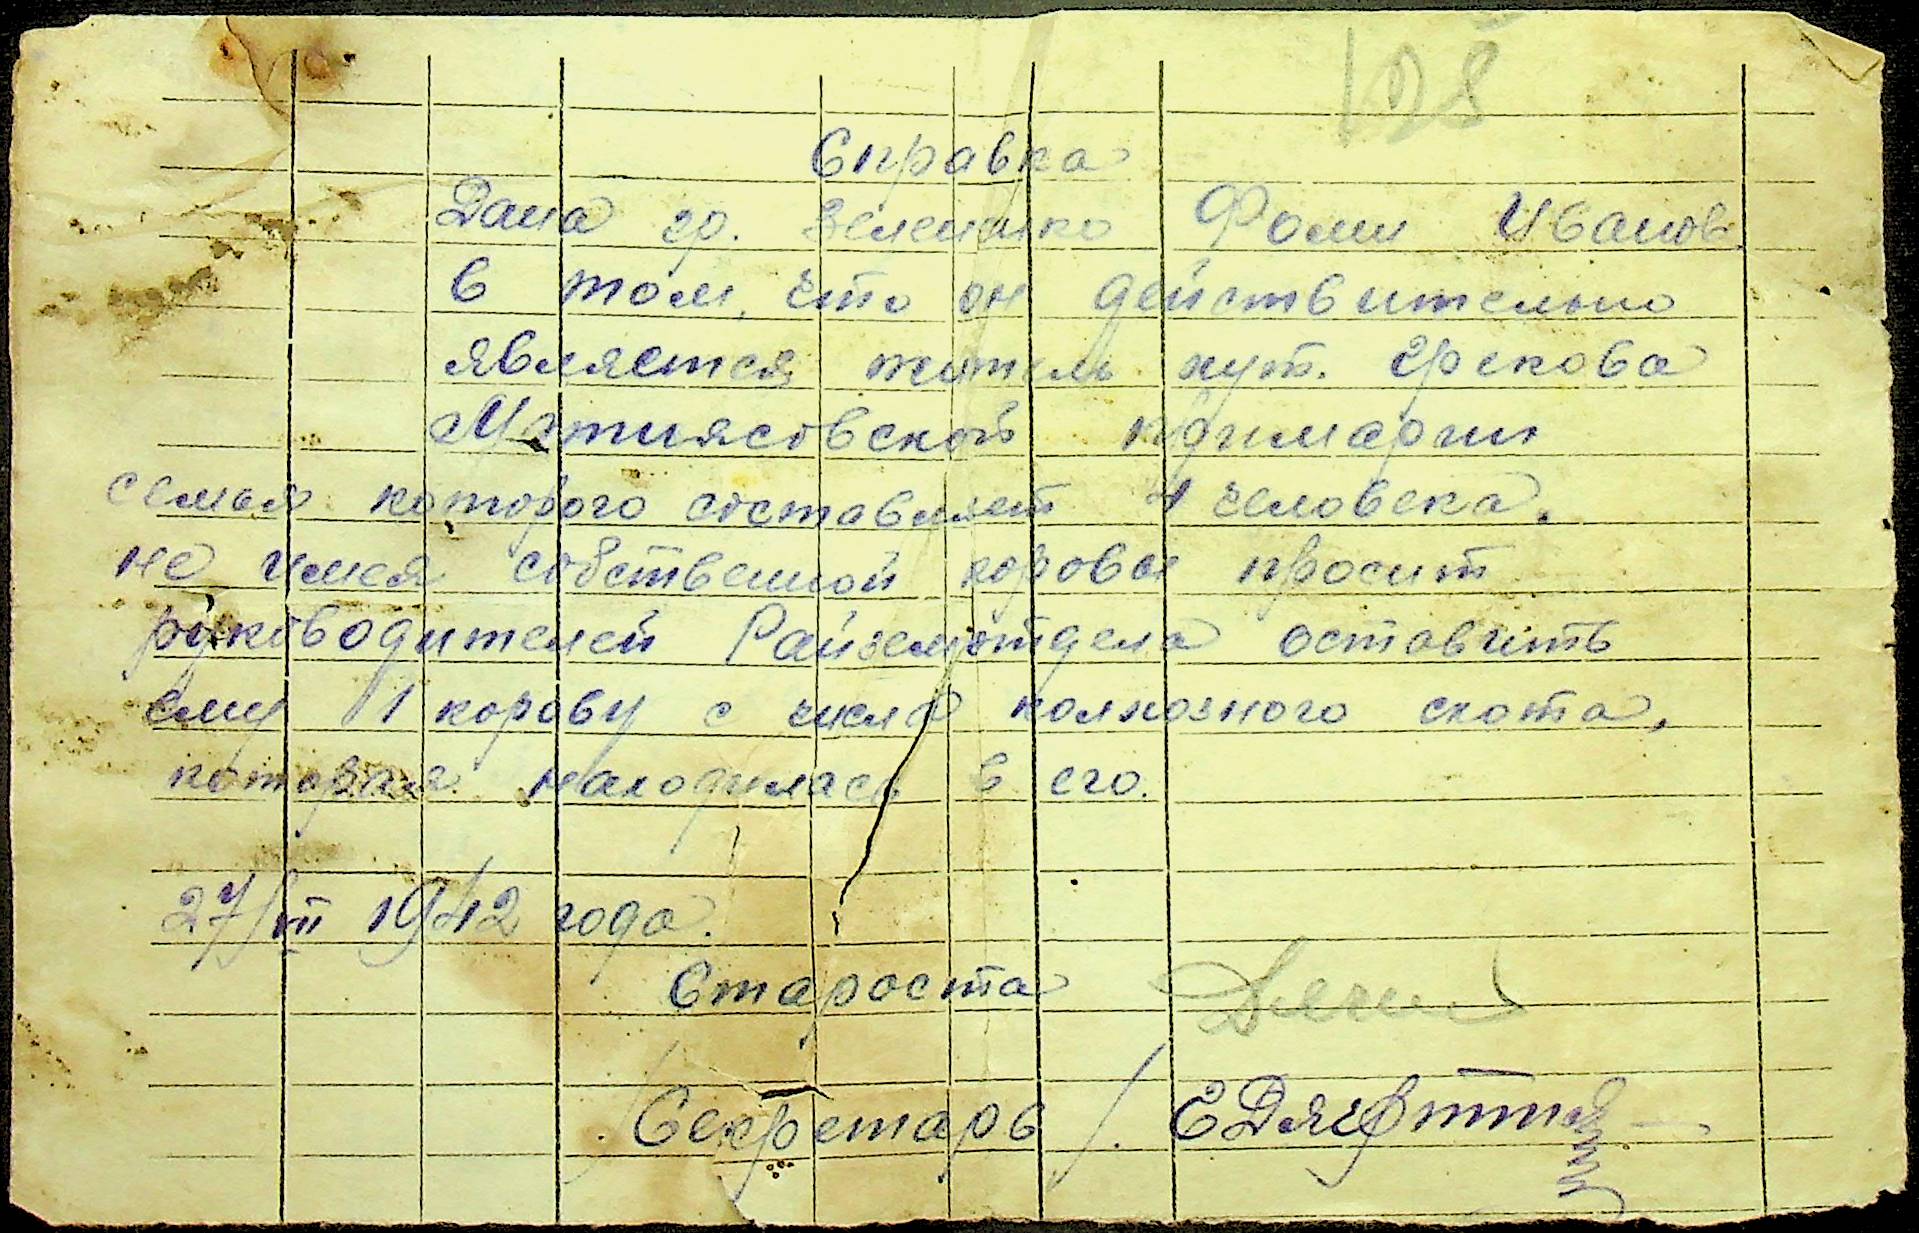 128
Справка
Дана гр. Зеленько Фоми Иванов.
в том, что он действительно
является житель хут. Грекова
Мотиясовской примарии
семья которого составляет 4 человека.
не имея собственной коровы просит
руководителей Райземотдела оставить
ему 1 корову с числа колхозного скота,
которая находилась в его.
27/VII 1942 года.
Староста
/Секретарь/.